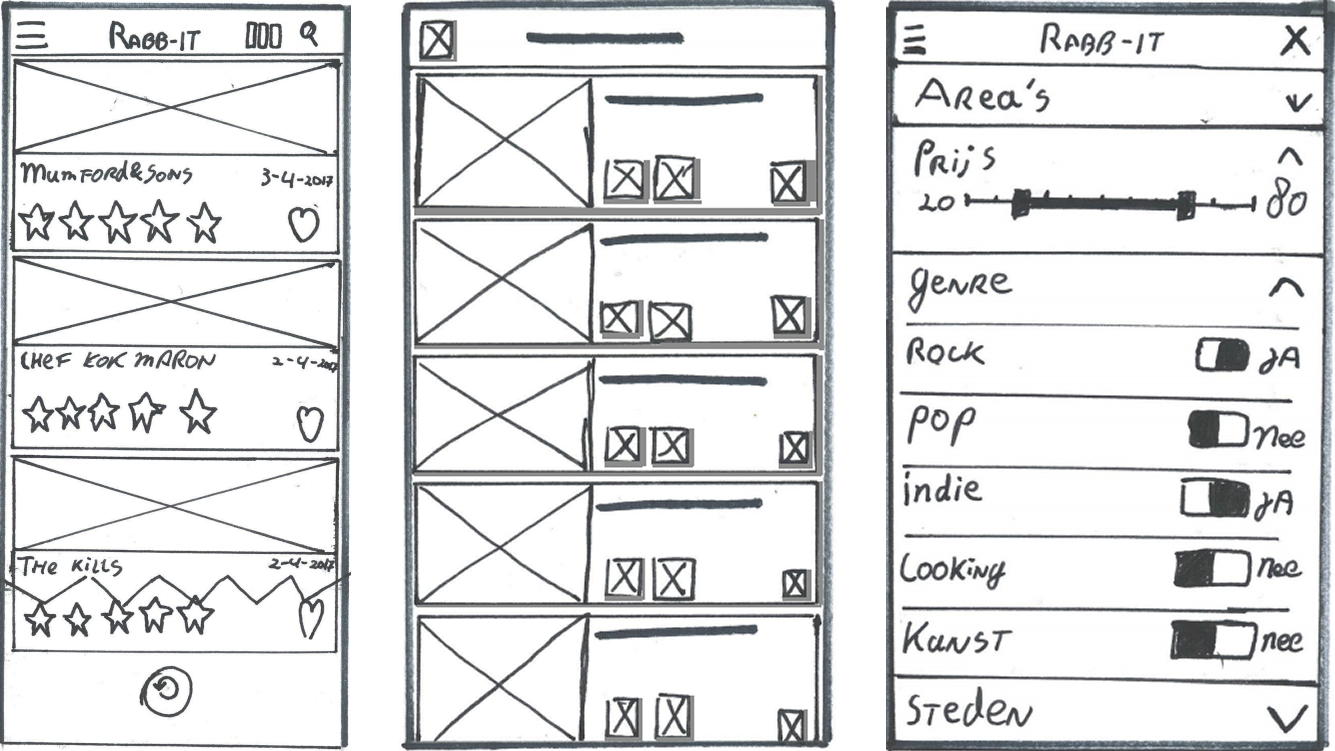 RABB-IT
MUMFORD&SONS 3-4-2017
CHEF KOK MARON 2-4-2017
THE KILLS 2-4-2017
RABB-IT X
AREA'S
PRIJS
20 80
GENRE
ROCK JA
POP Nee
indie JA
Cooking Nee
KUNST nee
STEDEN